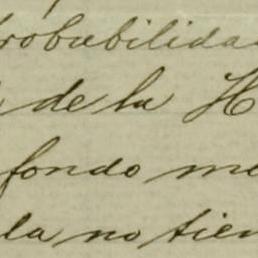 probabilida
de la H
fondo me
la no tien